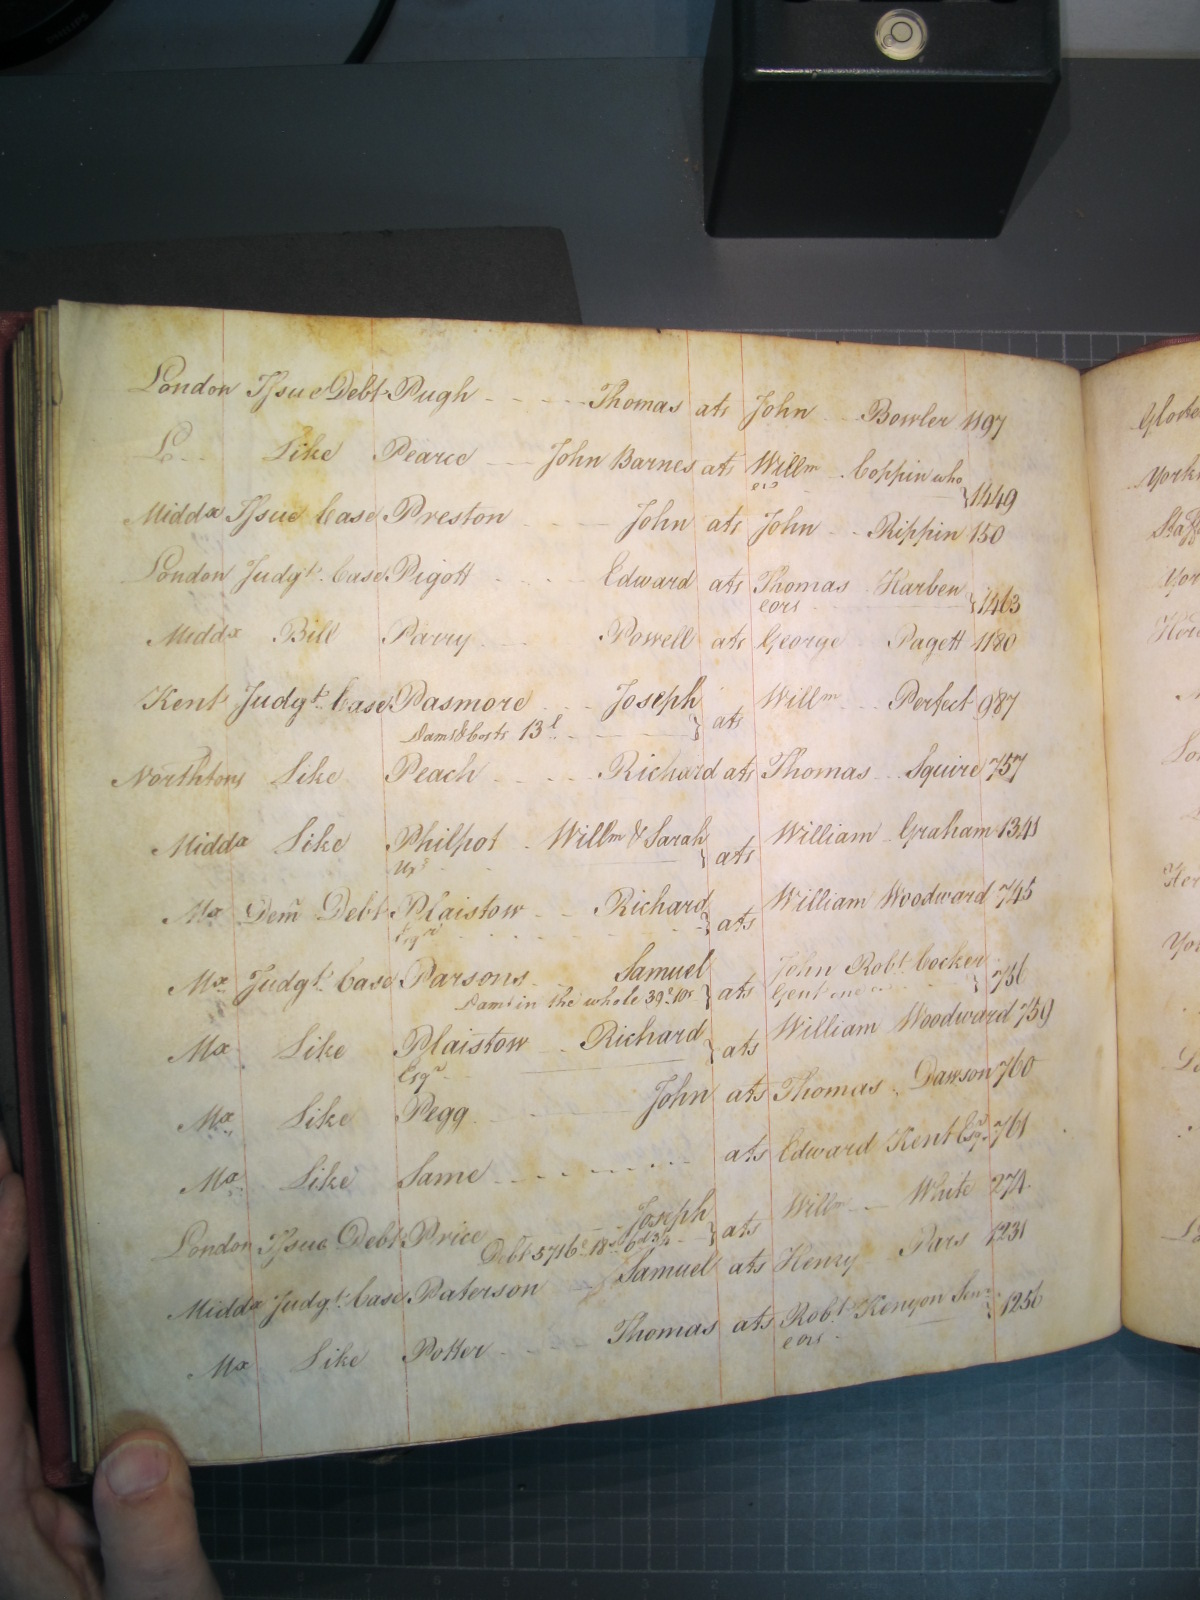 London Issue Debt Pugh Thomas ats John Bowler 1197
Lo.. Like Pearce John Barnes ats Willm Coppin who
1449
Middx Issue Case Preston John ats John Rippin 150
London Judgt. Case Pigott Edward ats Thomas Harben
eors 1463
Middx Bill Parry Powell ats George Pagett 1180
Kent Judgt. Case Pasmore Joseph ats Willm Perfect 987
Dams & Costs 13l
Northtons Like Peach Richard ats Thomas Squire 757
Middx Like Philpot Willm & Sarah ats William Graham 1341
Ux
Mx Dem Debt Plaistow Richard ats William Woodward 745
Esqr
Mx Judgt. Case Parsons Samuel ats John Robt. Cocker 756
Dams in the whole 39l. 10s Gent one
Mx Like Plaistow Richard ats William Woodward 759
Esqr
Mx Like Pegg John ats Thomas Dawson 760
Mx Like Same ats Edward Kent Esqr 761
London Issue Debt Price Joseph ats Willm White 274
Debt 5716l. 18s. 0d 3/4
Middx Judgt. Case Paterson Samuel ats Henry Pars 1231
Mx Like Potter Thomas ats Robt. Kenyon Senr. 1256
eors